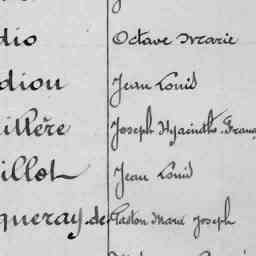 dio Octave Marie
diou Jean Louis
illère Joseph Hyacinthe Franç
illot Jean Louis
queray.de Gaston Marie Joseph